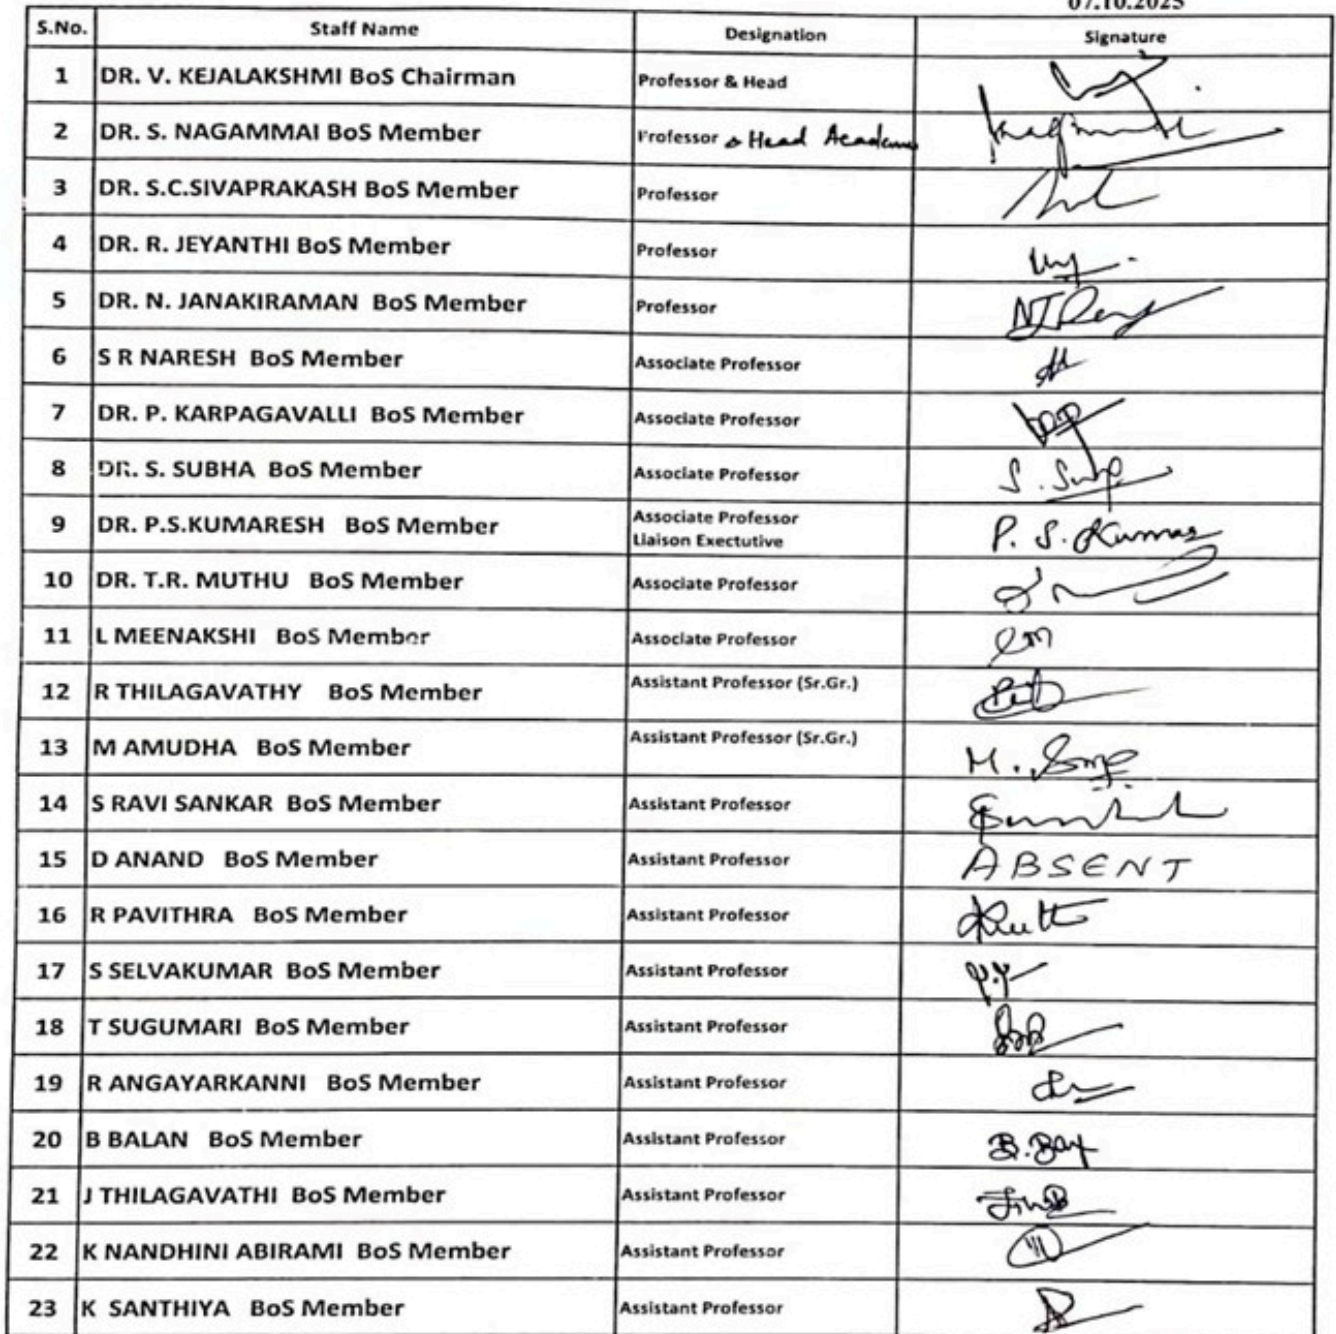 07.10.2025
S.No. Staff Name Designation Signature
1 DR. V. KEJALAKSHMI BoS Chairman Professor & Head
2 DR. S. NAGAMMAI BoS Member Professor & Head Academ
3 DR. S.C.SIVAPRAKASH BoS Member Professor
4 DR. R. JEYANTHI BoS Member Professor
5 DR. N. JANAKIRAMAN BoS Member Professor
6 S R NARESH BoS Member Associate Professor
7 DR. P. KARPAGAVALLI BoS Member Associate Professor
8 DR. S. SUBHA BoS Member Associate Professor
9 DR. P.S.KUMARESH BoS Member Associate Professor
Liaison Exectutive P. S. Kumar
10 DR. T.R. MUTHU BoS Member Associate Professor
11 L MEENAKSHI BoS Member Associate Professor
12 R THILAGAVATHY BoS Member Assistant Professor (Sr.Gr.)
13 M AMUDHA BoS Member Assistant Professor (Sr.Gr.)
14 S RAVI SANKAR BoS Member Assistant Professor
15 D ANAND BoS Member Assistant Professor ABSENT
16 R PAVITHRA BoS Member Assistant Professor
17 S SELVAKUMAR BoS Member Assistant Professor
18 T SUGUMARI BoS Member Assistant Professor
19 R ANGAYARKANNI BoS Member Assistant Professor
20 B BALAN BoS Member Assistant Professor
21 J THILAGAVATHI BoS Member Assistant Professor
22 K NANDHINI ABIRAMI BoS Member Assistant Professor
23 K SANTHIYA BoS Member Assistant Professor